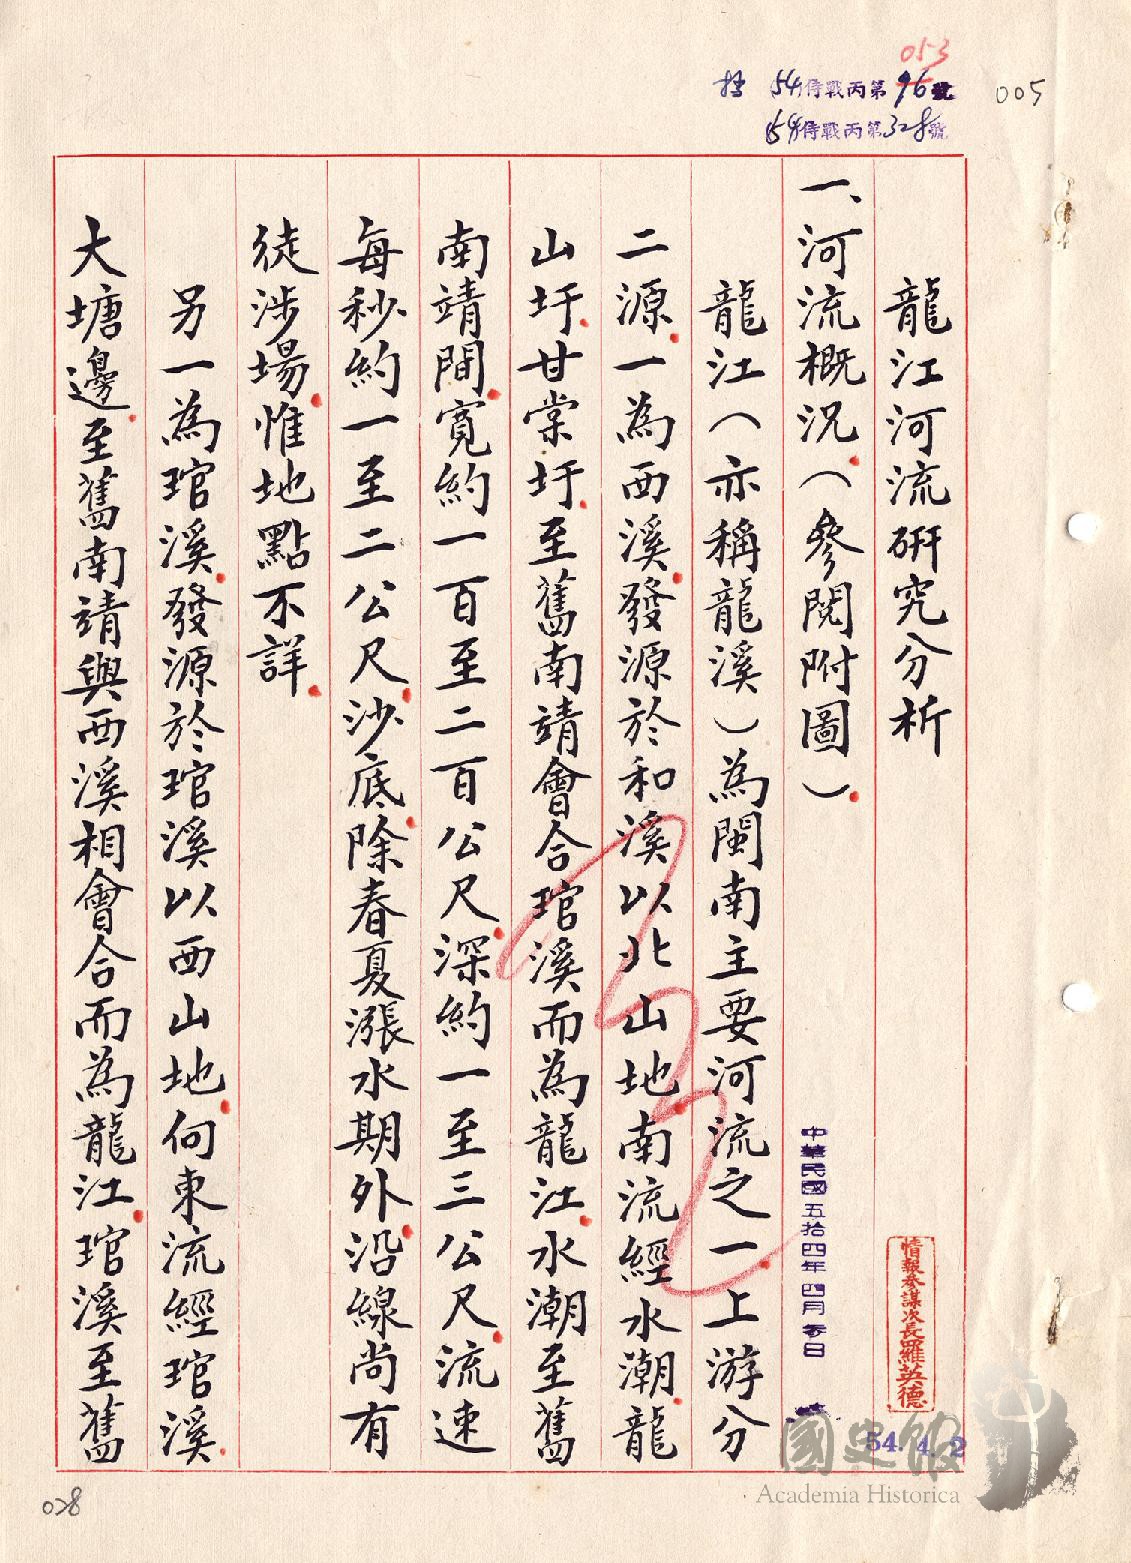 053
54侍戰丙第96號
54侍戰丙第328號
005
龍江河流研究分析
一、河流概況（參閱附圖）
龍江（亦稱龍溪）為閩南主要河流之一上游分
二源一為西溪發源於和溪以北山地南流經水潮龍
山圩甘棠圩至舊南靖會合琯溪而為龍江水潮至舊
南靖間寬約一百至二百公尺深約一至三公尺流速
每秒約一至二公尺沙底除春夏漲水期外沿線尚有
徒涉場惟地點不詳
另一為琯溪發源於琯溪以西山地向東流經琯溪
大塘邊至舊南靖與西溪相會合而為龍江琯溪至舊
中華民國五拾四年四月 日
情報參謀次長羅英德
54.4.2
國史館
Academia Historica
028